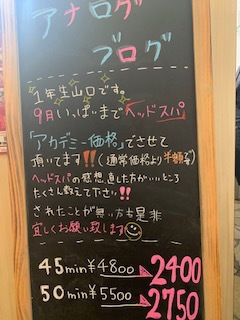 アナログ
ブログ
1年生山口です。
9月いっぱいまでヘッドスパ
「アカデミー価格」でさせて
頂いてます!!(通常価格より半額)
ヘッドスパの感想直した方がいいところ
たくさん教えて下さい!!
されたことが無い方も是非
宜しくお願い致します
45min ¥4800 2400
50min ¥5500 2750